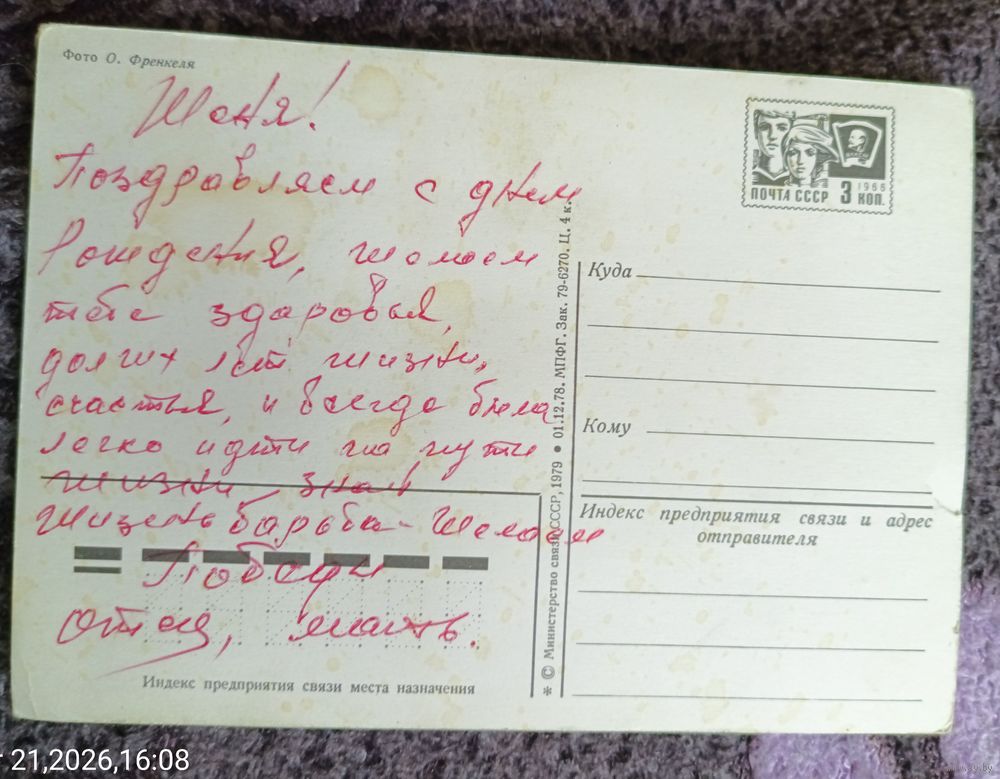 Фото О. Френкеля
Женя!
Поздравляем с днем
Рождения, желаем
тебе здоровья,
долгих лет жизни,
счастья, и всегда было
легко идти на пути
жизни знай
Жизень барьба - Желаем
Победы
отец, мать.
Индекс предприятия связи места назначения
* © Министерство связи СССР, 1979 • 01.12.78. МПФГ. Зак. 79-6270. Ц. 4 к.
ПОЧТА СССР 3 КОП.
1966
Куда
Кому
Индекс предприятия связи и адрес
отправителя
21,2026,16:08